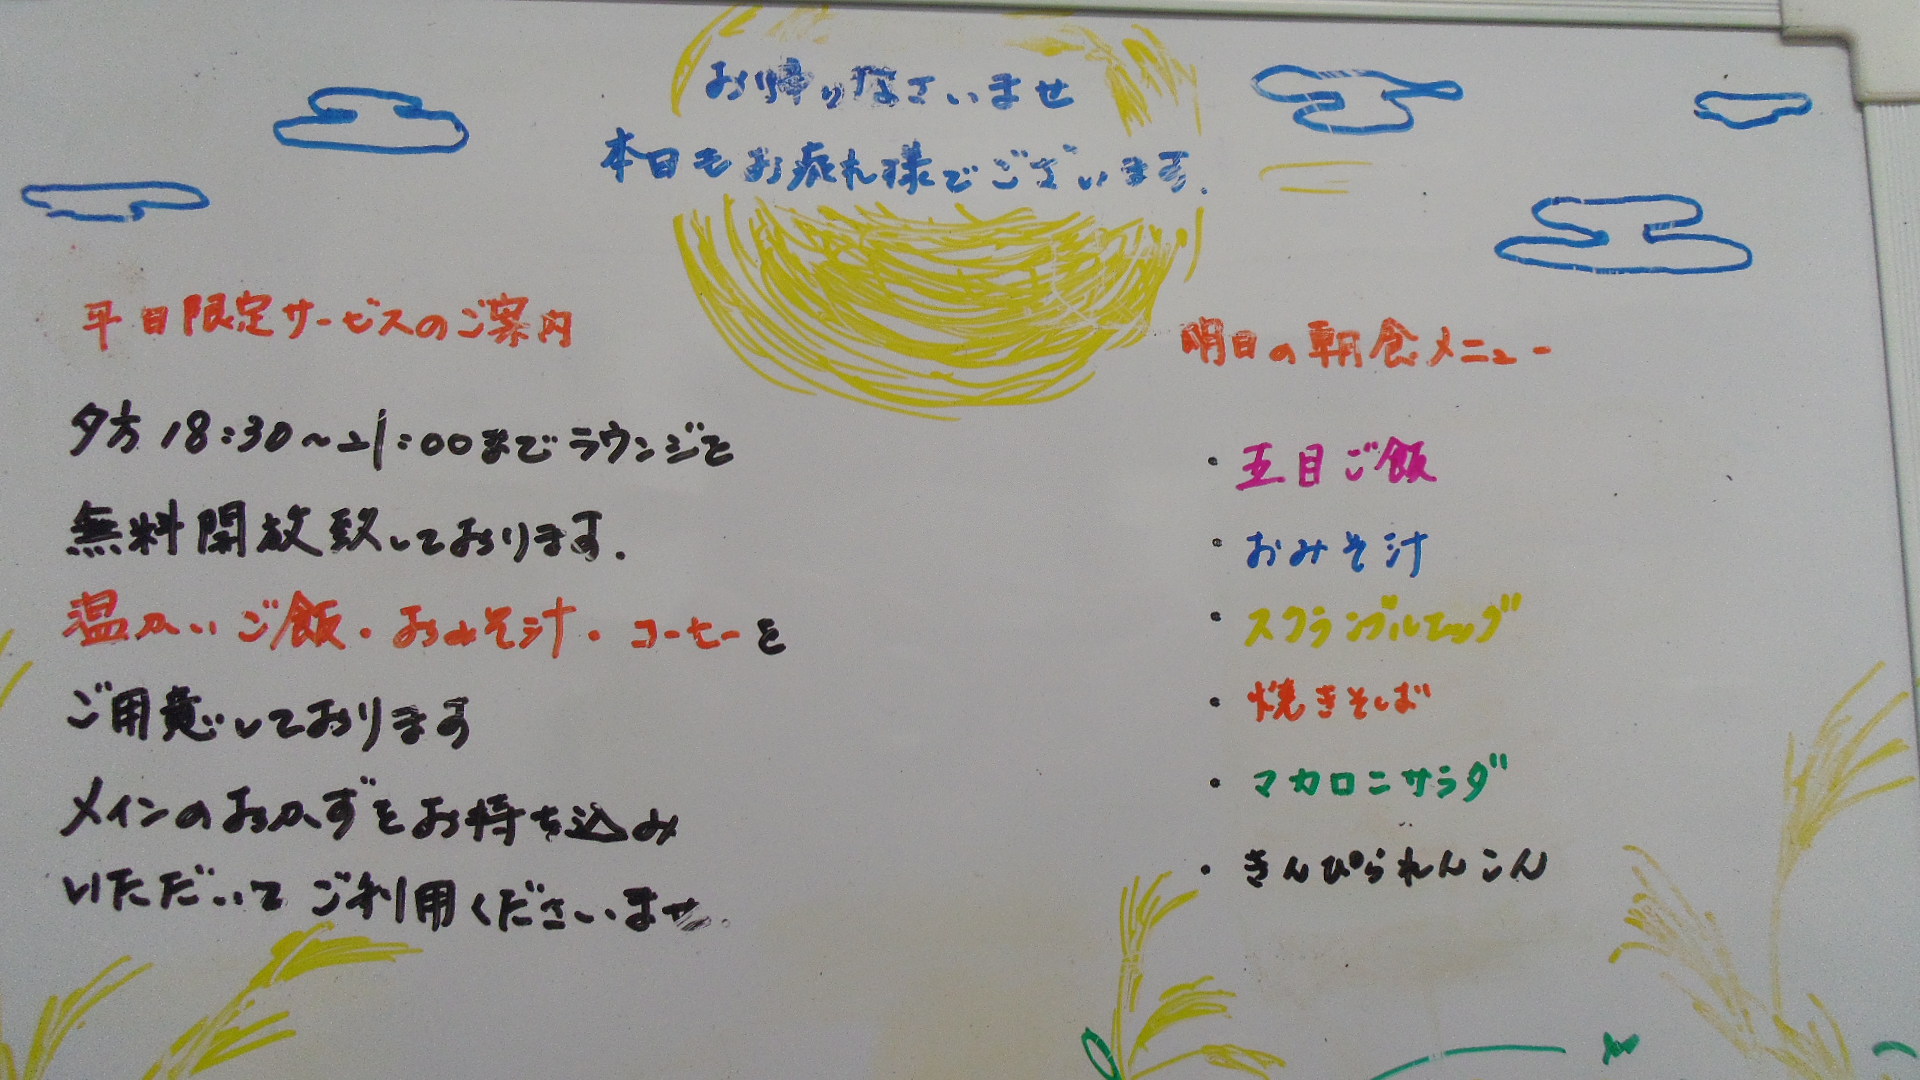 お帰りなさいませ
本日もお疲れ様でございます.
平日限定サービスのご案内
夕方18:30〜21:00までラウンジを
無料開放致しております.
温かいご飯・おみそ汁・コーヒーを
ご用意しております
メインのおかずをお持ち込み
いただいてご利用くださいませ.
明日の朝食メニュー
・五目ご飯
・おみそ汁
・スクランブルエッグ
・焼きそば
・マカロニサラダ
・きんぴられんこん